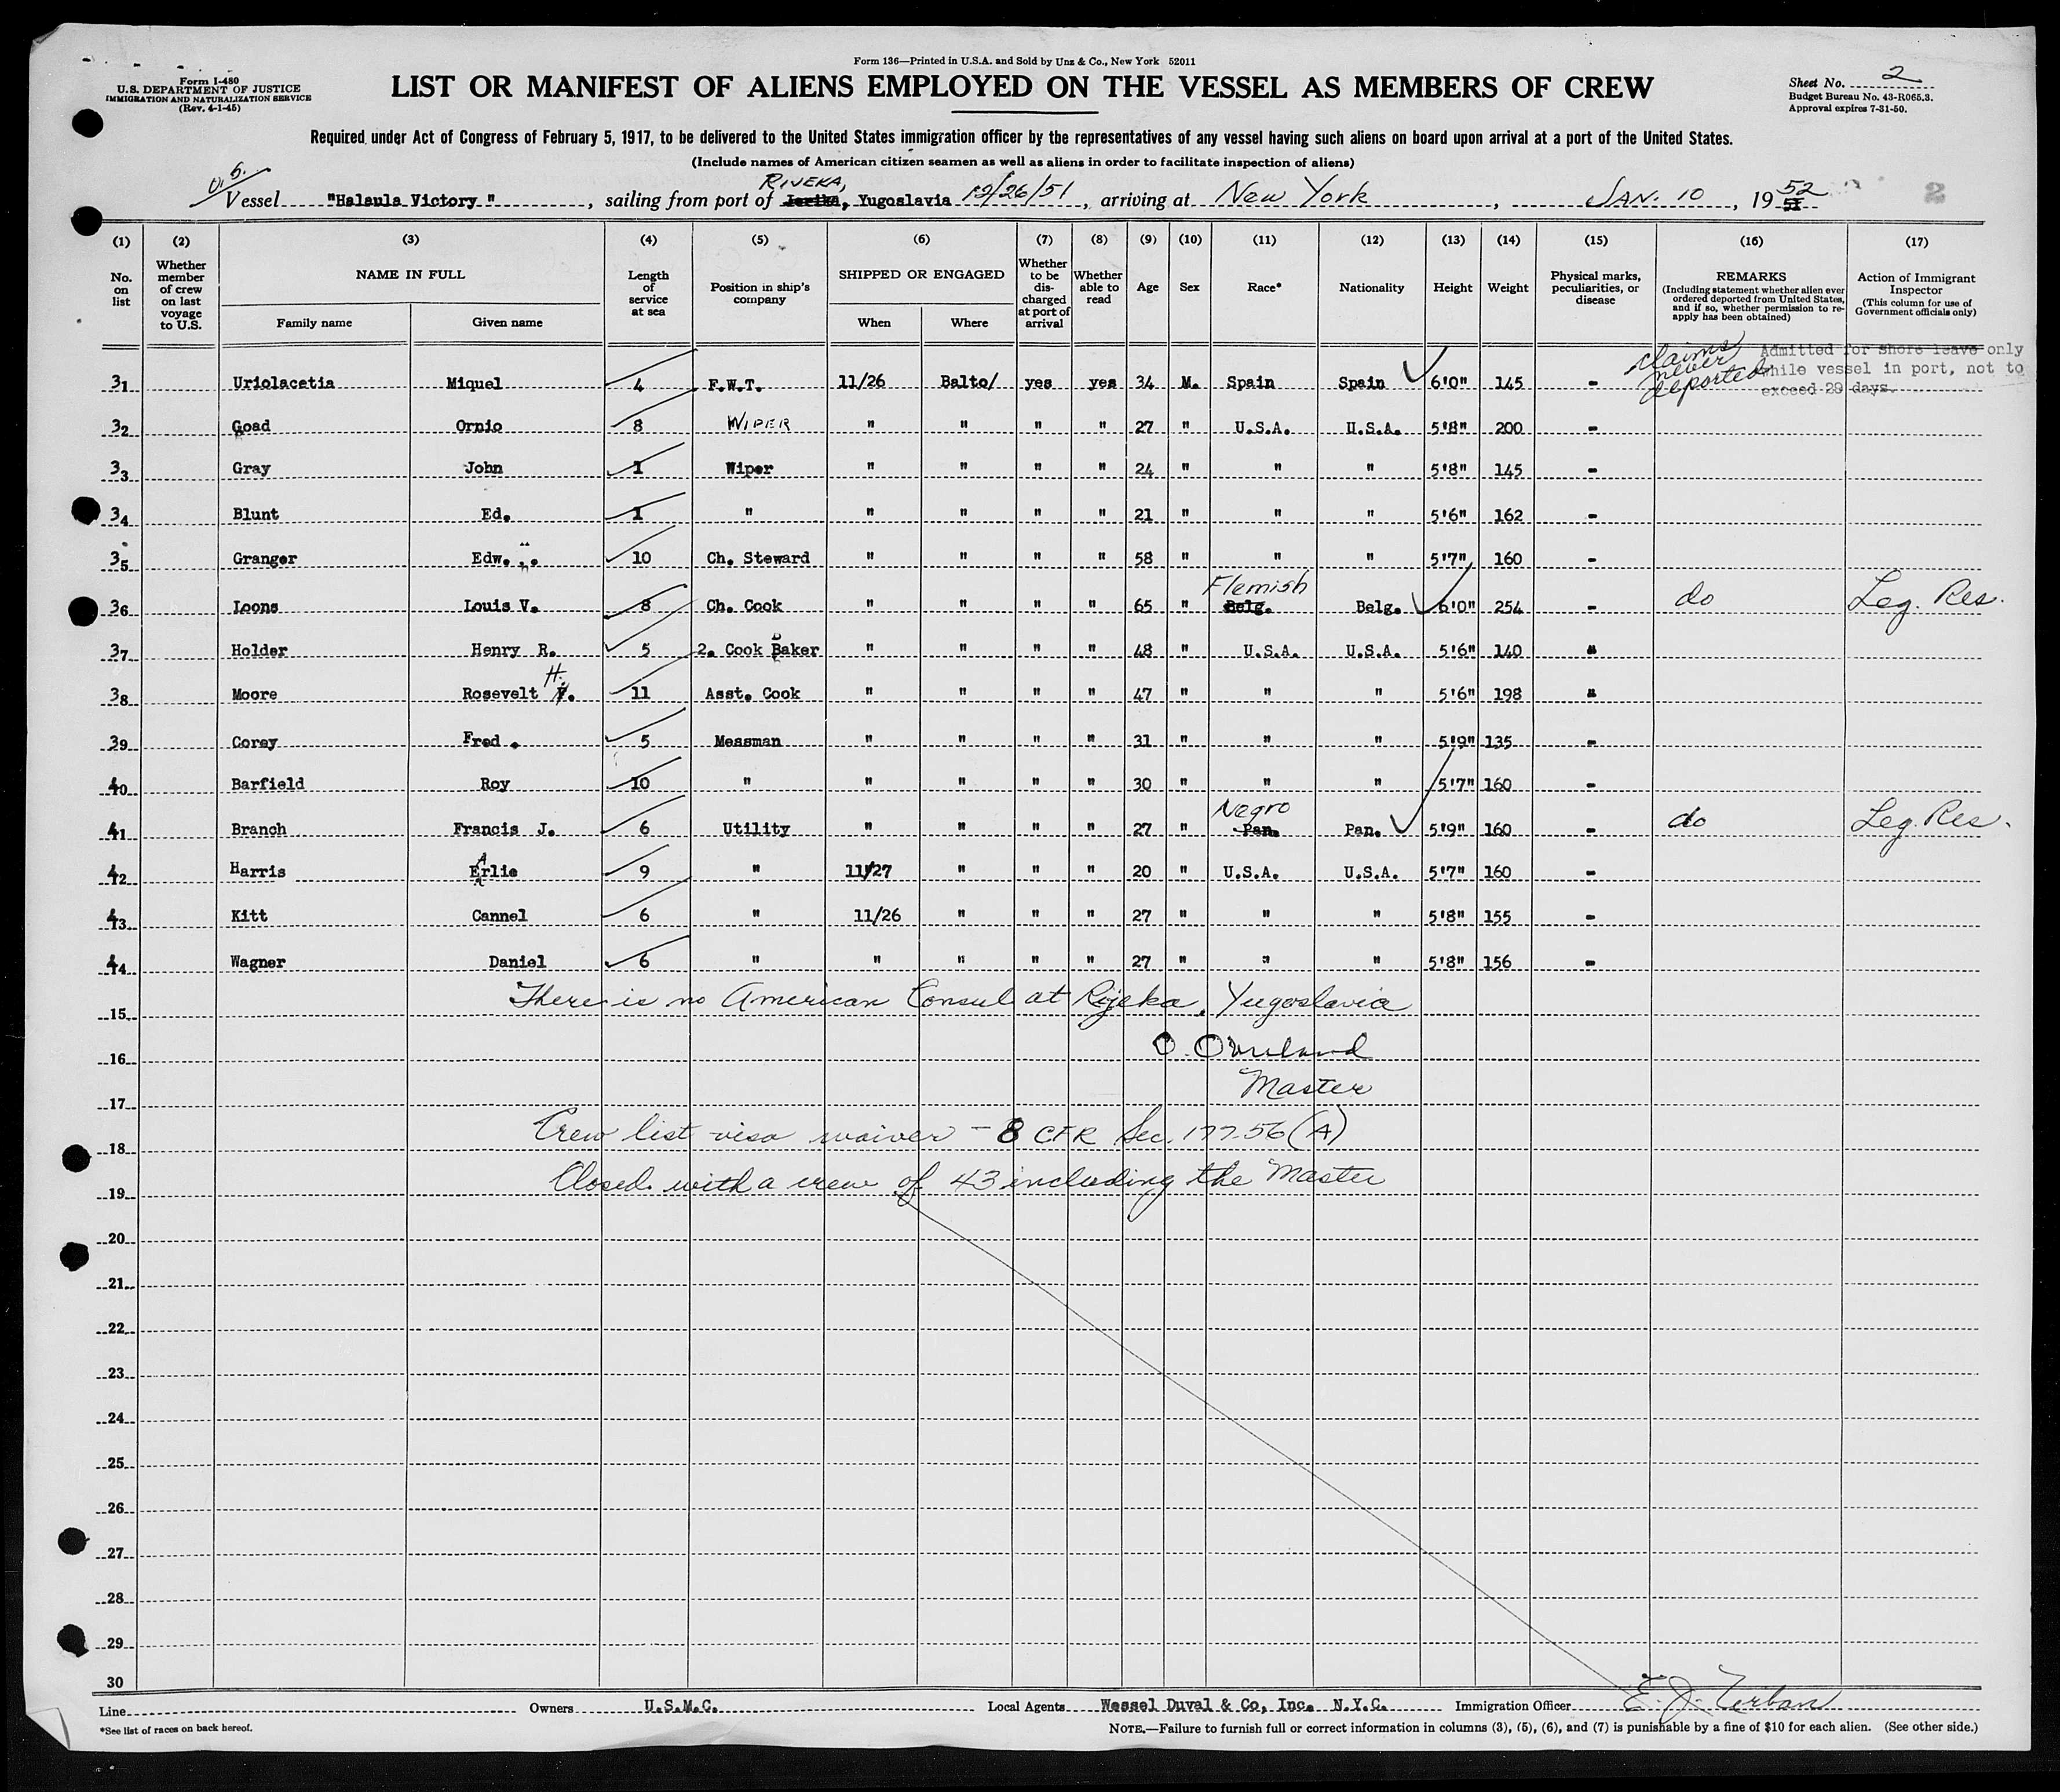 Form 136—Printed in U.S.A. and Sold by Unz & Co., New York 52011
Form I-480
U.S. DEPARTMENT OF JUSTICE
IMMIGRATION AND NATURALIZATION SERVICE
(Rev. 4-1-45)
LIST OR MANIFEST OF ALIENS EMPLOYED ON THE VESSEL AS MEMBERS OF CREW
Sheet No. 2
Budget Bureau No. 43-R065.3.
Approval expires 7-31-50.
Required under Act of Congress of February 5, 1917, to be delivered to the United States immigration officer by the representatives of any vessel having such aliens on board upon arrival at a port of the United States.
(Include names of American citizen seamen as well as aliens in order to facilitate inspection of aliens)
Vessel "Halaula Victory", sailing from port of RIJEKA, Yugoslavia 12/26/51, arriving at New York, JAN. 10, 1952 2
(1) (2) (3) (4) (5) (6) (7) (8) (9) (10) (11) (12) (13) (14) (15) (16) (17)
No. on list
Whether member of crew on last voyage to U.S.
NAME IN FULL
Family name Given name
Length of service at sea
Position in ship's company
SHIPPED OR ENGAGED
When Where
Whether to be discharged at port of arrival
Whether able to read
Age
Sex
Race*
Nationality
Height
Weight
Physical marks, peculiarities, or disease
REMARKS
(Including statement whether alien ever ordered deported from United States, and if so, whether permission to re-apply has been obtained)
Action of Immigrant Inspector
(This column for use of Government officials only)
31 Uriolacetia Miquel 4 F.W.T. 11/26 Balto/ yes yes 34 M. Spain Spain 6'0" 145 - claims never deported Admitted for shore leave only while vessel in port, not to exceed 29 days.
32 Goad Ornio 8 WIPER " " " " 27 " U.S.A. U.S.A. 5'8" 200 -
33 Gray John 1 Wiper " " " " 24 " " " 5'8" 145 -
34 Blunt Ed. 1 " " " " " 21 " " " 5'6" 162 -
35 Granger Edw. 10 Ch. Steward " " " " 58 " " " 5'7" 160 -
36 Loons Louis V. 8 Ch. Cook " " " " 65 " Flemish Belg. Belg. 6'0" 254 - do Leg. Res.
37 Holder Henry R. 5 2. Cook Baker " " " " 48 " U.S.A. U.S.A. 5'6" 140 "
38 Moore Rosevelt H. 11 Asst. Cook " " " " 47 " " " 5'6" 198 "
39 Corey Fred. 5 Messman " " " " 31 " " " 5'9" 135 -
40 Barfield Roy 10 " " " " " 30 " " " 5'7" 160 -
41 Branch Francis J. 6 Utility " " " " 27 " Negro Pan. Pan. 5'9" 160 - do Leg. Res.
42 Harris Arlie 9 " 11/27 " " " 20 " U.S.A. U.S.A. 5'7" 160 -
43 Kitt Cannel 6 " 11/26 " " " 27 " " " 5'8" 155 -
44 Wagner Daniel 6 " " " " " 27 " " " 5'8" 156 -
There is no American Consul at Rijeka, Yugoslavia
15
16
Master
17
Crew list visa waiver - 8 CFR Sec. 177.56 (A)
18
Closed with a crew of 43 including the Master
19
20
21
22
23
24
25
26
27
28
29
30
Line Owners U.S.M.C. Local Agents Wessel Duval & Co, Inc. N.Y.C. Immigration Officer
*See list of races on back hereof.
NOTE.—Failure to furnish full or correct information in columns (3), (5), (6), and (7) is punishable by a fine of $10 for each alien. (See other side.)